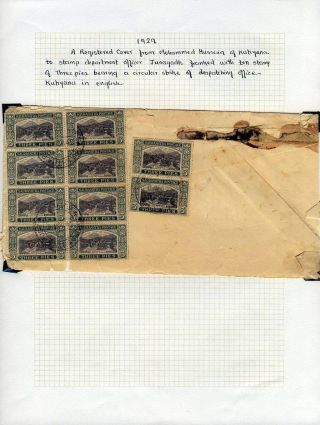 1929
A Registered Cover from Mohammed Hussein of Kutiyana
to stamp department officer Junagadh franked with ten stamp
of Three pies bearing a circular strike of despatching office-
Kutiyana in english.
THREE PIES
THREE PIES
THREE PIES
THREE PIES
THREE PIES
THREE PIES
THREE PIES
THREE PIES
THREE PIES
THREE PIES